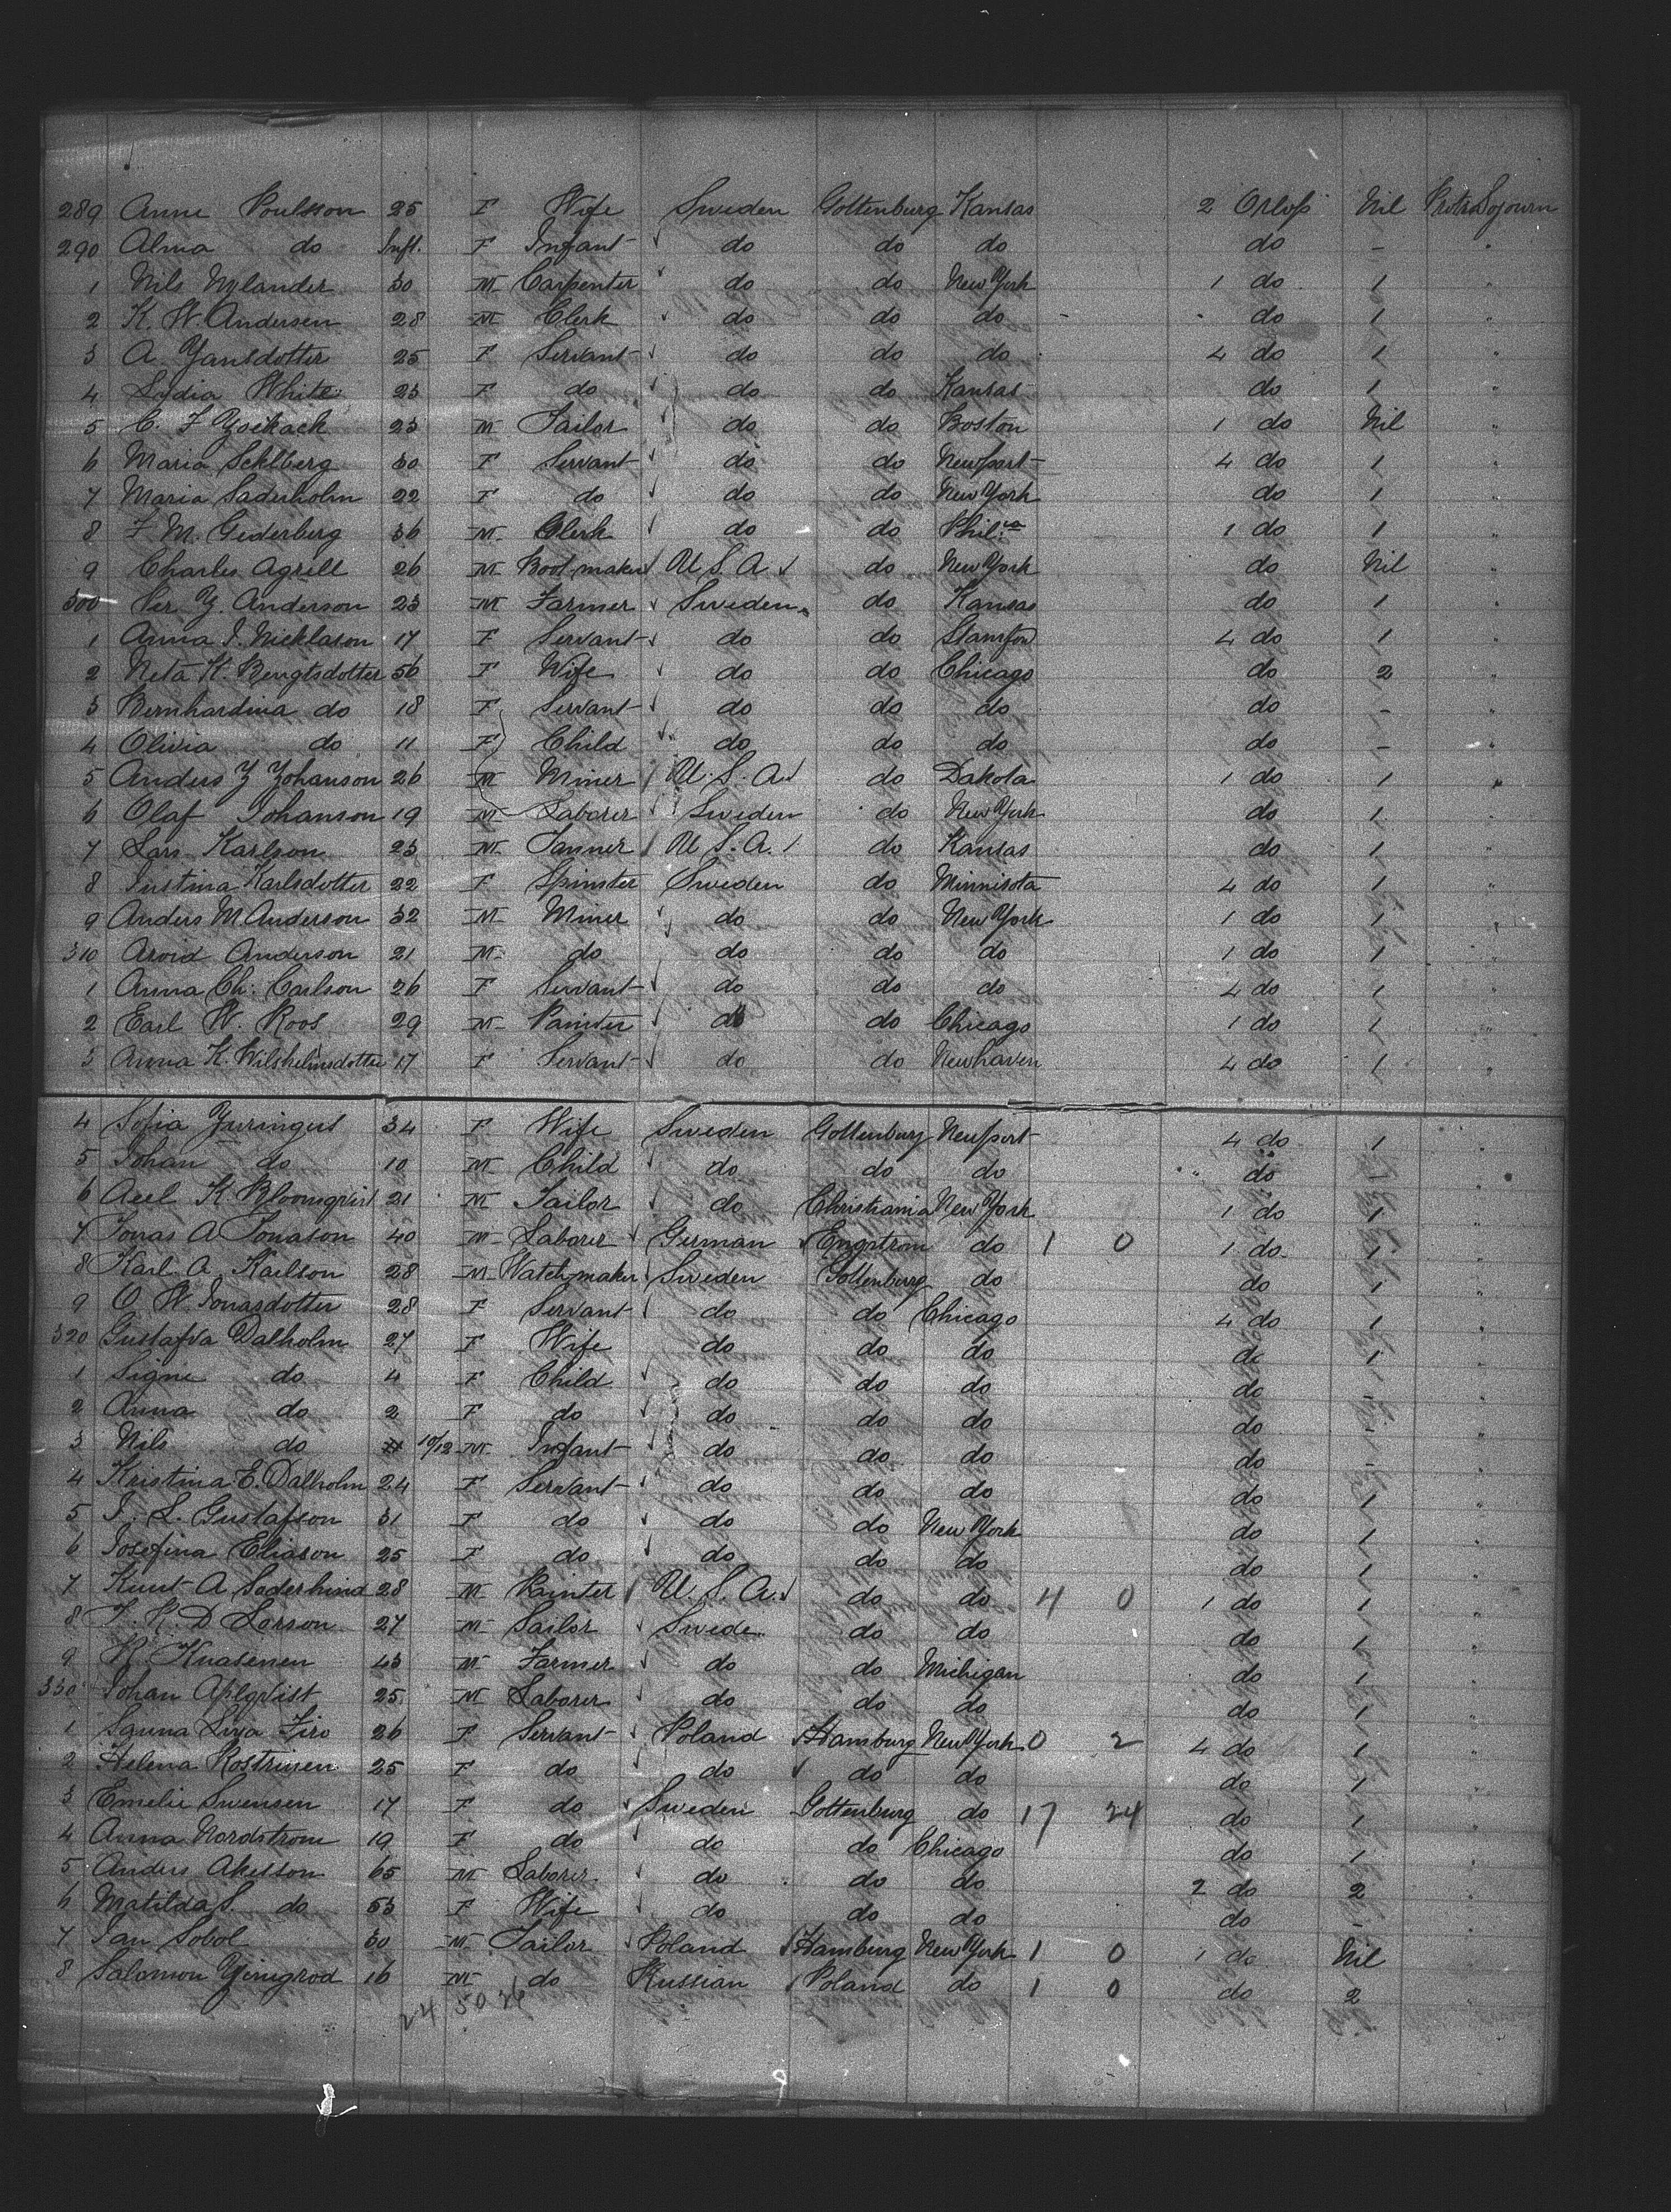 289 Anne Poulsson 25 F Wife Sweden Gottenburg Kansas 2 Orlop Nil Sojourn
290 Alma do Inft. F Infant do do do do -
1 Nils Nylander 30 M Carpenter do do New York 1 do 1
2 K. W. Andersen 28 M Clerk do do do do 1
3 A. Yansdotter 25 F Servant do do do 4 do 1
4 Lydia White 23 F do do do Kansas do 1
5 C. F 23 M Tailor do do Boston 1 do Nil
6 Maria Sehlberg 30 F Servant do do Newport 4 do 1
7 Maria Saderholm 22 F do do do New York do 1
8 F. M. Gederberg 36 M Clerk do do Phil.ia 1 do 1
9 Charles Agrell 26 M Boot maker U. S. A. do New York do Nil
300 Per Y. Anderson 23 M Farmer Sweden do Kansas do 1
1 Anna I. Nicklason 17 F Servant do do Stamford 4 do 1
2 Neta K. Bengtsdotter 56 F Wife do do Chicago do 2
3 Bernhardina do 18 F Servant do do do do -
4 Olivia do 11 F Child do do do do -
5 Anders Y Yohanson 26 M Miner U. S. A. do Dakota 1 do 1
6 Olaf Johanson 19 M Laborer Sweden do New York do 1
7 Lars Karlson 23 M Tanner U. S. A. do Kansas do 1
8 Justina Karlsdotter 22 F Spinster Sweden do Minnisota 4 do 1
9 Anders M. Anderson 32 M Miner do do New York 1 do 1
310 Arvid Anderson 21 M do do do do 1 do 1
1 Anna Ch. Carlson 26 F Servant do do do 4 do 1
2 Earl W. Roos 29 M Painter do do Chicago 1 do 1
3 Anna K. Wilshelmsdotter 17 F Servant do do Newhaven 4 do 1
4 Sofia Yuringus 34 F Wife Sweden Gottenburg Newport 4 do 1
5 Johan do 10 M Child do do do do -
6 Axel K Bloomqvist 21 M Tailor do Christiania New York 1 do 1
7 Jonas A Jonason 40 M Laborer German Engstrom do 1 0 1 do 1
8 Karl. A. Karlson 28 M Watchmaker Sweden Gottenburg do do 1
9 O. W. Jonasdotter 28 F Servant do do Chicago 4 do 1
320 Gustafva Dalholm 27 F Wife do do do do 1
1 Signe do 4 F Child do do do do -
2 Anna do 2 F do do do do do -
3 Nils do 10/12 M Infant do do do do -
4 Kristina E. Dalholm 24 F Servant do do do do 1
5 I. L. Gustafson 31 F do do do New York do 1
6 Josefina Eliason 25 F do do do do do 1
7 Knut A Soderhind 28 M Painter U. S. A. do do 4 0 1 do 1
8 F. K. D Larson 27 M Sailor Swede do do do 1
9 K. Knasenen 43 M Farmer do do Michigan do 1
330 Johan Aplqvist 25 M Laborer do do do do 1
1 Sanna Liva Firo 26 F Servant Poland Hamburg New York 0 2 4 do 1
2 Helena Kostrinen 25 F do do do do do 1
3 Emelie Swensen 17 F do Sweden Gottenburg do 17 24 do 1
4 Anna Nordstrom 19 F do do do Chicago do 1
5 Anders Akesson 65 M Laborer do do do 2 do 2
6 Matilda S. do 53 F Wife do do do do -
7 Jan Sobol 30 M Tailor Poland Hamburg New York 1 0 1 do Nil
8 Salomon Yimgrod 16 M do Russian Poland do 1 0 do 2
24 50 26
9